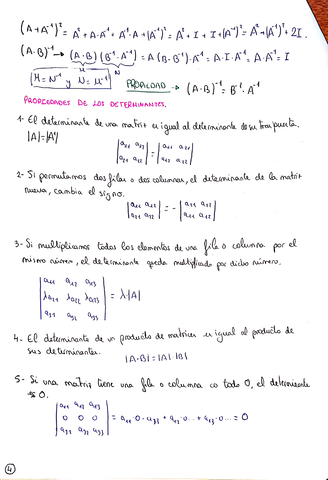 (A+A⁻¹)² = A² + A·A⁻¹ + A⁻¹·A + (A⁻¹)² = A² + I + I + (A⁻¹)² = A² + (A⁻¹)² + 2I.
(A·B)⁻¹ → (A·B)·(B⁻¹·A⁻¹) = A(B·B⁻¹)·A⁻¹ = A·I·A⁻¹ = A·A⁻¹ = I
M N
M = N⁻¹ y N = M⁻¹ PROPIEDAD → (A·B)⁻¹ = B⁻¹·A⁻¹
PROPIEDADES DE LOS DETERMINANTES.
1- El determinante de una matriz es igual al determinante de su traspuesta.
|A|=|Aᵗ|
2- Si permutamos dos filas o dos columnas, el determinante de la matriz
nueva, cambia el signo.
3- Si multiplicamos todos los elementos de una fila o columna por el
mismo número, el determinante queda multiplicado por dicho número.
a₁₁ a₁₂ a₁₃
λa₂₁ λa₂₂ λa₂₃ = λ|A|
4- El determinante de un producto de matrices es igual al producto de
sus determinantes.
|A·B| = |A| |B|
5- Si una matriz tiene una fila o columna co todo 0, el determinante
es 0.
0 0 0
4